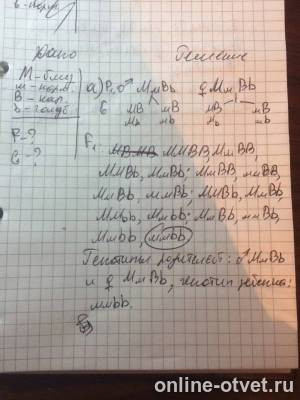 Дано
Решение
М-близ
m-норм.
В-кар.
b-голуб.
P-?
G-?
а) P, ♂ MmBb ♀ MmBb
G MB mB MB mB
Mb mb Mb mb
F₁ MMBB, MmBB,
MMBb, MmBb; MmBB, mmBB,
MmBb, mmBb; MMBb, MmBb,
MMbb, Mmbb; MmBb, mmBb,
Mmbb, mmbb
Генотипы родителей: ♂ MmBb
и ♀ MmBb, генотип ребенка:
mmbb.
online-otvet.ru